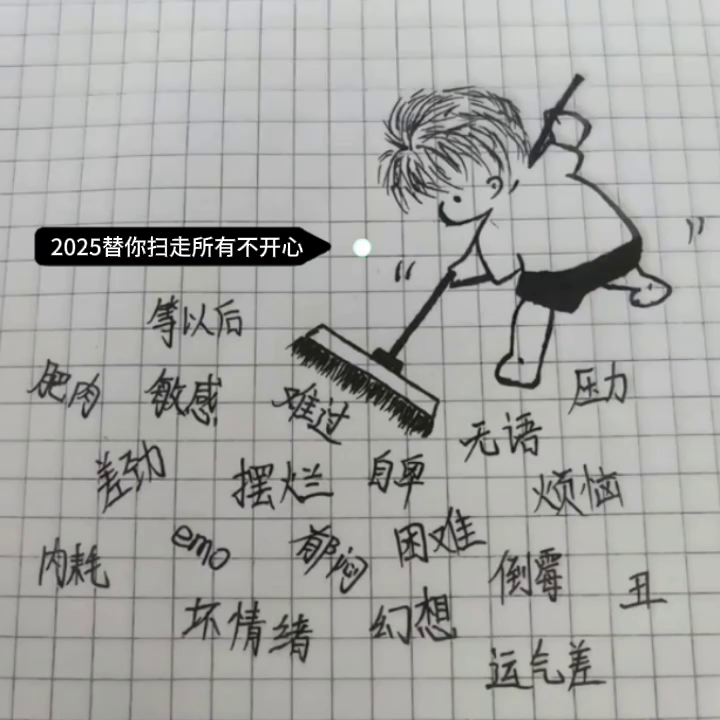 2025替你扫走所有不开心
等以后
肥肉 敏感 难过 压力
差劲 摆烂 自卑 无语 烦恼
内耗 emo 郁闷 困难 倒霉 丑
坏情绪 幻想
运气差